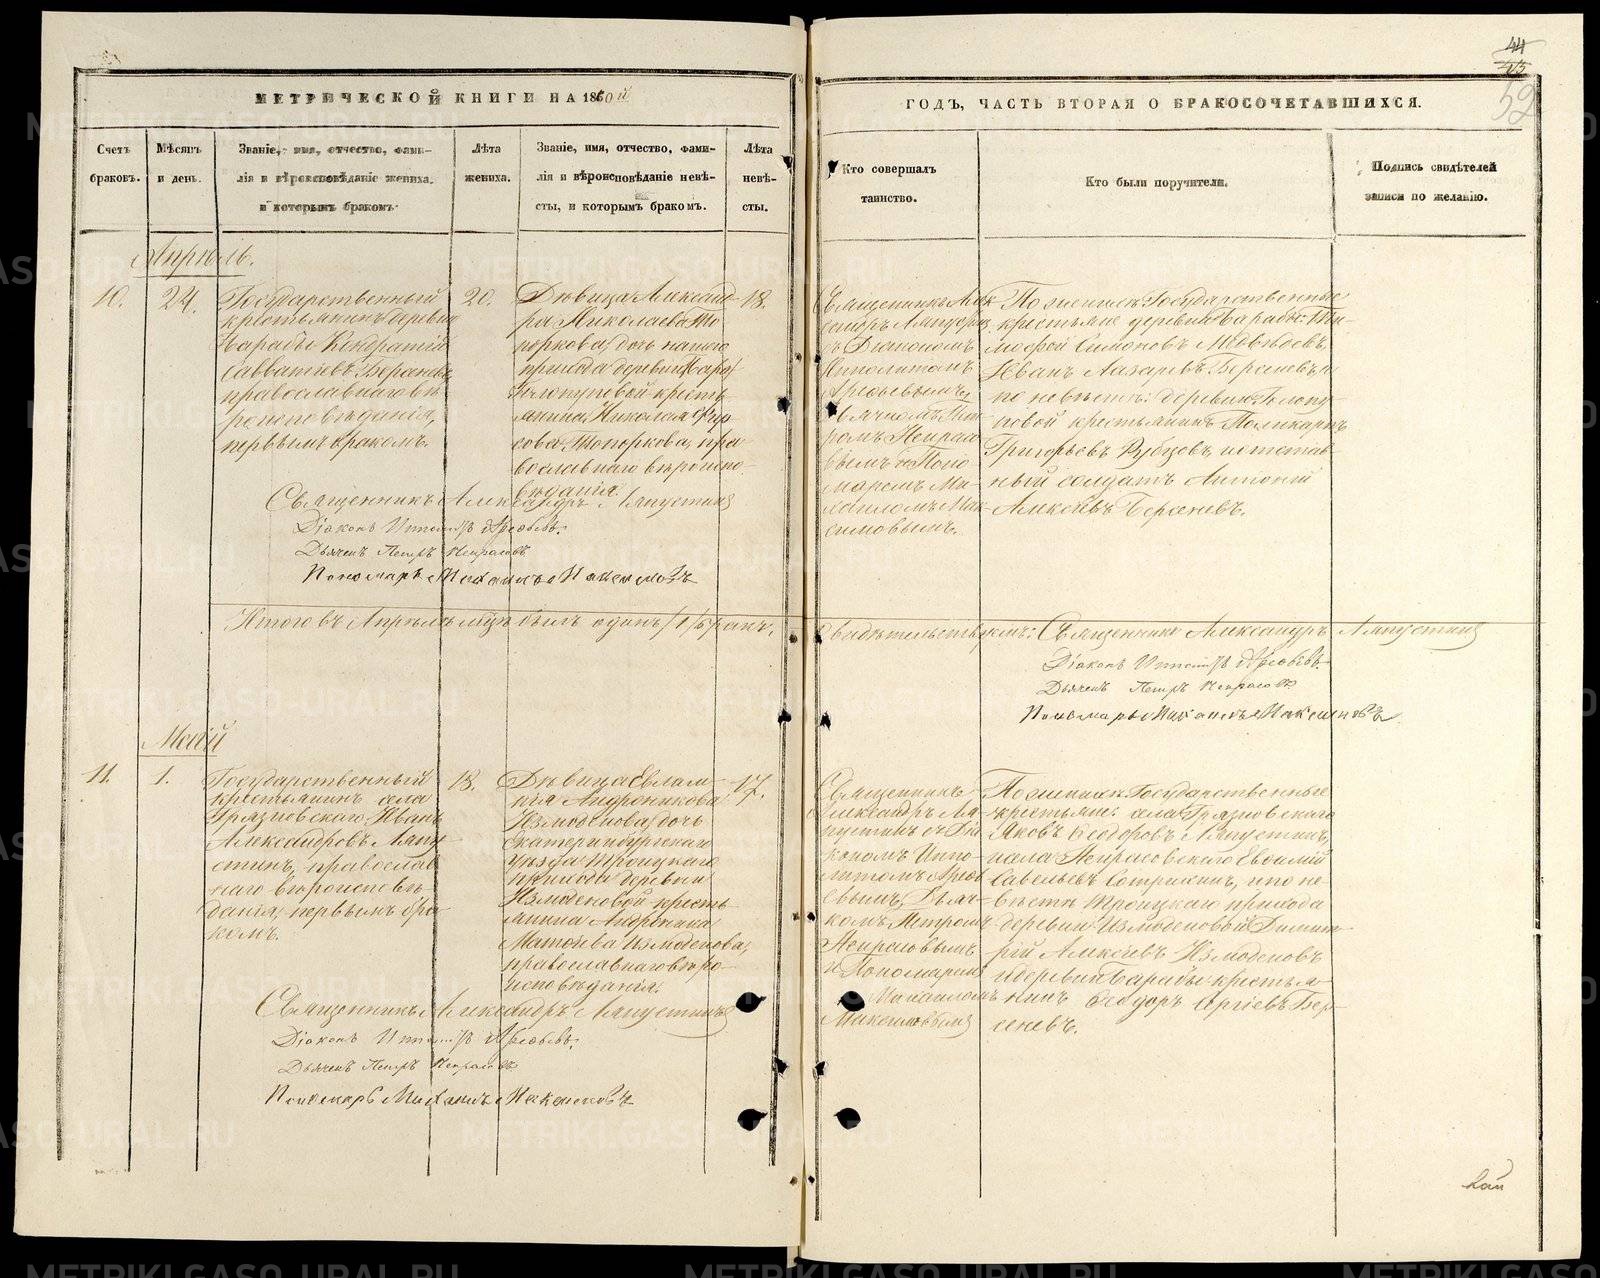 МЕТРИЧЕСКОЙ КНИГИ НА 1860й
ГОДЪ, ЧАСТЬ ВТОРАЯ О БРАКОСОЧЕТАВШИХСЯ.
44
52
Счетъ
браковъ.
Мѣсяцъ
и день.
Званіе, имя, отчество, фами-
лія и вѣроисповѣданіе жениха.
и которымъ бракомъ.
Лѣта
жениха.
Званіе, имя, отчество, фами-
лія и вѣроисповѣданіе невѣ-
сты, и которымъ бракомъ.
Лѣта
невѣ-
сты.
Кто совершалъ
таинство.
Кто были поручители.
Подпись свидѣтелей
записи по желанію.
Апрѣль.
10.
24.
Государственный
крестьянинъ деревни
Чарабы Кондратій
Савватіевъ
православнаго вѣ
роисповѣданія,
первымъ бракомъ.
20.
Дѣвица Александ-
ра Николаева То
поркова, дочь нашего
прихода деревни
Голопуповой кресть
янина Николая
сова Топоркова, пра
вославнаго вѣроиспо-
вѣданія.
18.
Священникъ Алек
сандръ Ляпустинъ
съ Діакономъ
Ипполитомъ
Арефьевымъ,
Дьячкомъ Пет-
ромъ Некрасо
вымъ и Поно
маремъ Ми-
хаиломъ Мак-
симовымъ.
По женихѣ: Государственные
крестьяне деревни Чарабы: Ти-
мофей Симоновъ
Иванъ Лазаревъ Берсеневъ, а
по невѣстѣ: деревни Голопу-
повой крестьянинъ Поликарпъ
Григорьевъ Рубцовъ, и отстав-
ный солдатъ Антоній
Алексѣевъ Берсеневъ.
Священникъ Александръ Ляпустинъ
Діаконъ Ипполитъ Арефьевъ.
Дьячекъ Петръ Некрасовъ
Пономарь Михаилъ Максимовъ
Итого въ Апрѣлѣ мцѣ былъ одинъ /1/ бракъ.
Свидѣтельствуемъ: Священникъ Александръ Ляпустинъ
Діаконъ Ипполитъ Арефьевъ.
Дьячекъ Петръ Некрасовъ
Пономарь Михаилъ Максимовъ
Май
11.
1.
Государственный
крестьянинъ села
Грязновскаго Иванъ
Александровъ Ляпу
стинъ, православ
наго вѣроисповѣ
данія, первымъ бра
комъ.
18.
Дѣвица Евлам-
пія Андроникова
Измоденова, дочь
Екатеринбургскаго
уѣзда Троицкаго
прихода деревни
Измоденовой кресть
янина Андроника
Матѳіева Измоденова,
православнаго вѣро
исповѣданія.
17.
Священникъ
Александръ Ля
пустинъ съ Діа
кономъ Иппо-
литомъ Арефь
евымъ, Дьяч-
комъ Петромъ
Некрасовымъ
и Пономаремъ
Михаиломъ
Максимовымъ
По женихѣ: Государственные
крестьяне: села Грязновскаго
Яковъ Ѳеодоровъ Ляпустинъ,
села Некрасовскаго Евфимій
Савельевъ Сотрихинъ, и по не-
вѣстѣ Троицкаго прихода
деревни Измоденовой Димит-
рій Алексѣевъ Измоденовъ
и деревни Чарабы крестья-
нинъ Ѳеодоръ Сергіевъ Бер-
сеневъ.
Священникъ Александръ Ляпустинъ
Діаконъ Ипполитъ Арефьевъ.
Дьячекъ Петръ Некрасовъ
Пономарь Михаилъ Максимовъ
METRIKI.GASO-URAL.RU